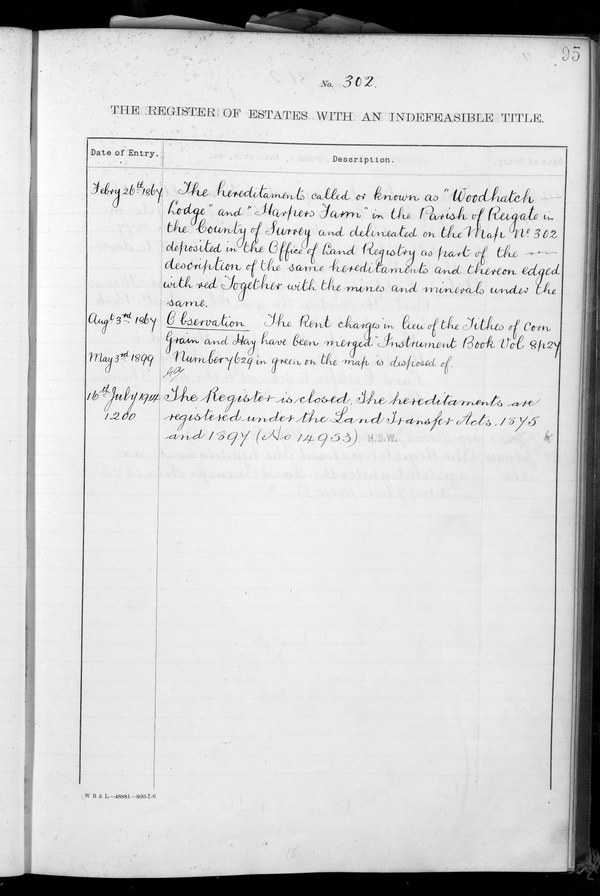 95
No. 302.
THE REGISTER OF ESTATES WITH AN INDEFEASIBLE TITLE.
Date of Entry.
Description.
Febry 26th 1867 The hereditaments called or known as "Woodhatch
Lodge" and "Harpers Farm" in the Parish of Reigate in
the County of Surrey and delineated on the Map No 302
deposited in the Office of Land Registry as part of the
description of the same hereditaments and thereon edged
with red Together with the mines and minerals under the
same.
Augt 3rd 1867 Observation The Rent charges in lieu of the Tithes of Corn
Grain and Hay have been merged Instrument Book Vol 8 p 27
May 3rd 1899 Number 7629 in green on the map is disposed of.
16th July 1914 The Register is closed. The hereditaments are
1200 registered under the Land Transfer Acts. 1875
and 1897 (No 14953). H.S.W.
W B & L—48881—800-7-6